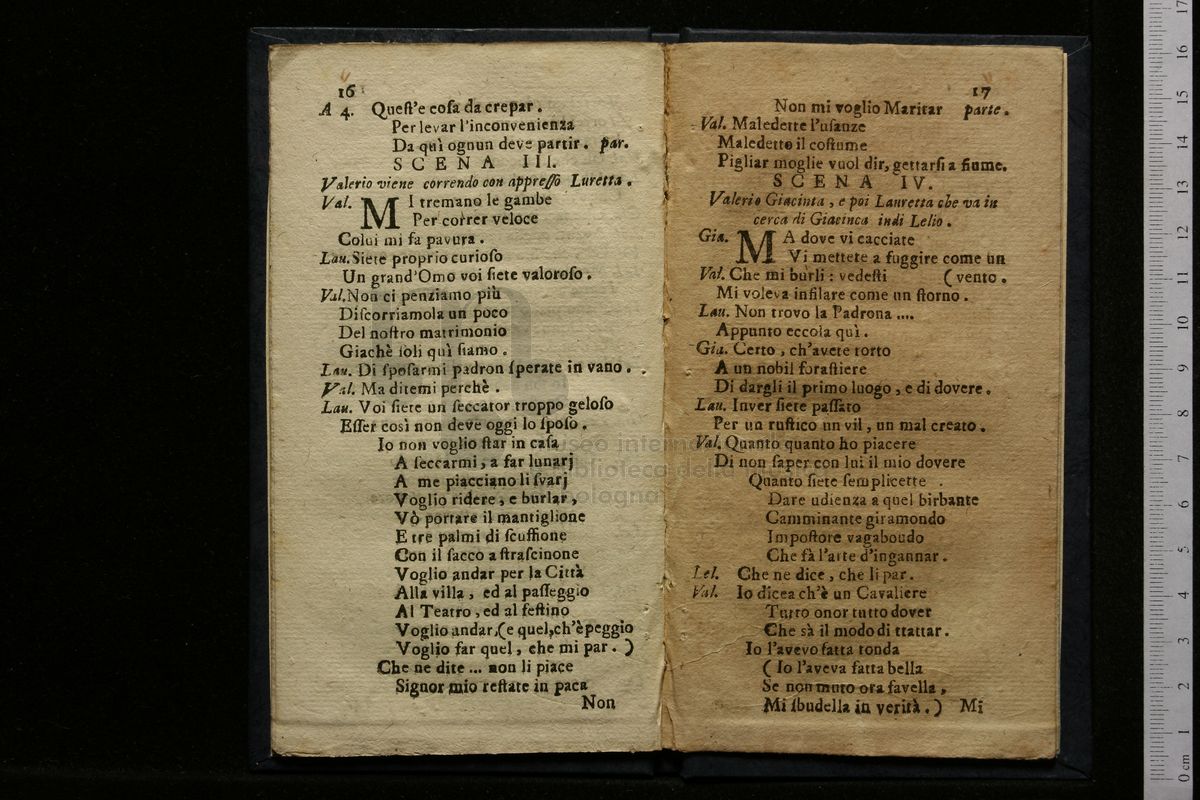 16
A 4. Queſt'e coſa da crepar.
Per levar l'inconvenienza
Da quì ognun deve partir. par.
SCENA III.
Valerio viene correndo con appreſſo Luretta.
Val. MI tremano le gambe
Per correr veloce
Colui mi fa pavura.
Lau. Siete proprio curioſo
Un grand'Omo voi ſiete valoroſo.
Val. Non ci penziamo più
Diſcorriamola un poco
Del noſtro matrimonio
Giachè ſoli quì ſiamo.
Lau. Di ſpoſarmi padron ſperate in vano.
Val. Ma ditemi perchè.
Lau. Voi ſiete un ſeccator troppo geloſo
Eſſer così non deve oggi lo ſpoſo.
Io non voglio ſtar in caſa
A ſeccarmi, a far lunarj
A me piacciano li ſvarj
Voglio ridere, e burlar,
Vò portare il mantiglione
E tre palmi di ſcuffione
Con il ſacco a ſtraſcinone
Voglio andar per la Città
Alla villa, ed al paſſeggio
Al Teatro, ed al feſtino
Voglio andar, (e quel, ch'è peggio
Voglio far quel, che mi par.)
Che ne dite ... non li piace
Signor mio reſtate in paca
Non
17
Non mi voglio Maritar parte.
Val. Maledette l'uſanze
Maledetto il coſtume
Pigliar moglie vuol dir, gettarſi a fiume.
SCENA IV.
Valerio Giacinta, e poi Lauretta che va in
cerca di Giacinca indi Lelio.
Gia. MA dove vi cacciate
Vi mettete a fuggire come un
Val. Che mi burli: vedeſti (vento.
Mi voleva infilare come un ſtorno.
Lau. Non trovo la Padrona ....
Appunto eccola quì.
Gia. Certo, ch'avete torto
A un nobil foraſtiere
Di dargli il primo luogo, e di dovere.
Lau. Inver ſiete paſſato
Per un ruſtico un vil, un mal creato.
Val. Quanto quanto ho piacere
Di non ſaper con lui il mio dovere
Quanto ſiete ſemplicette.
Dare udienza a quel birbante
Camminante giramondo
Impoſtore vagaboudo
Che fà l'arte d'ingannar.
Lel. Che ne dice, che li par.
Val. Io dicea ch'è un Cavaliere
Tutto onor tutto dover
Che sà il modo di ttattar.
Io l'avevo fatta tonda
(Io l'aveva fatta bella
Se non muto ora favella,
Mi sbudella in verità.) Mi